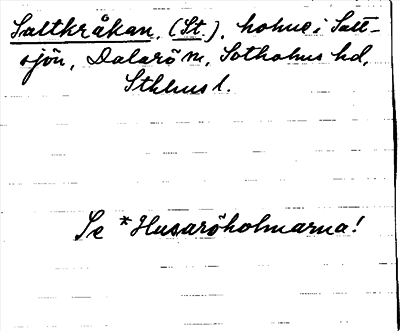 Saltkråkan, (St.), holme i Salt-
sjön, Dalarö sn, Sotholms hd,
Sthlms l.
Se *Husaröholmarna!